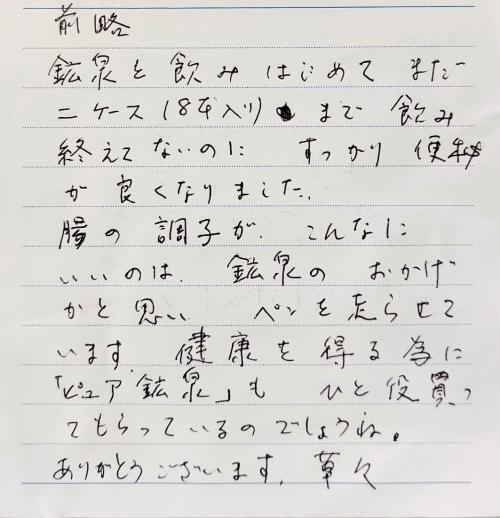 前略
鉱泉と飲みはじめてまだ
ニケース(8本入り)まで飲み
終えてないのにすっかり便秘
が良くなりました。
腸の調子が、こんなに
いいのは、鉱泉のおかげ
かと思いペンを走らせて
います。健康を得る為に
「ピュア鉱泉」もひと役買っ
てもらっているのでしょうね。
ありがとうございます。草々